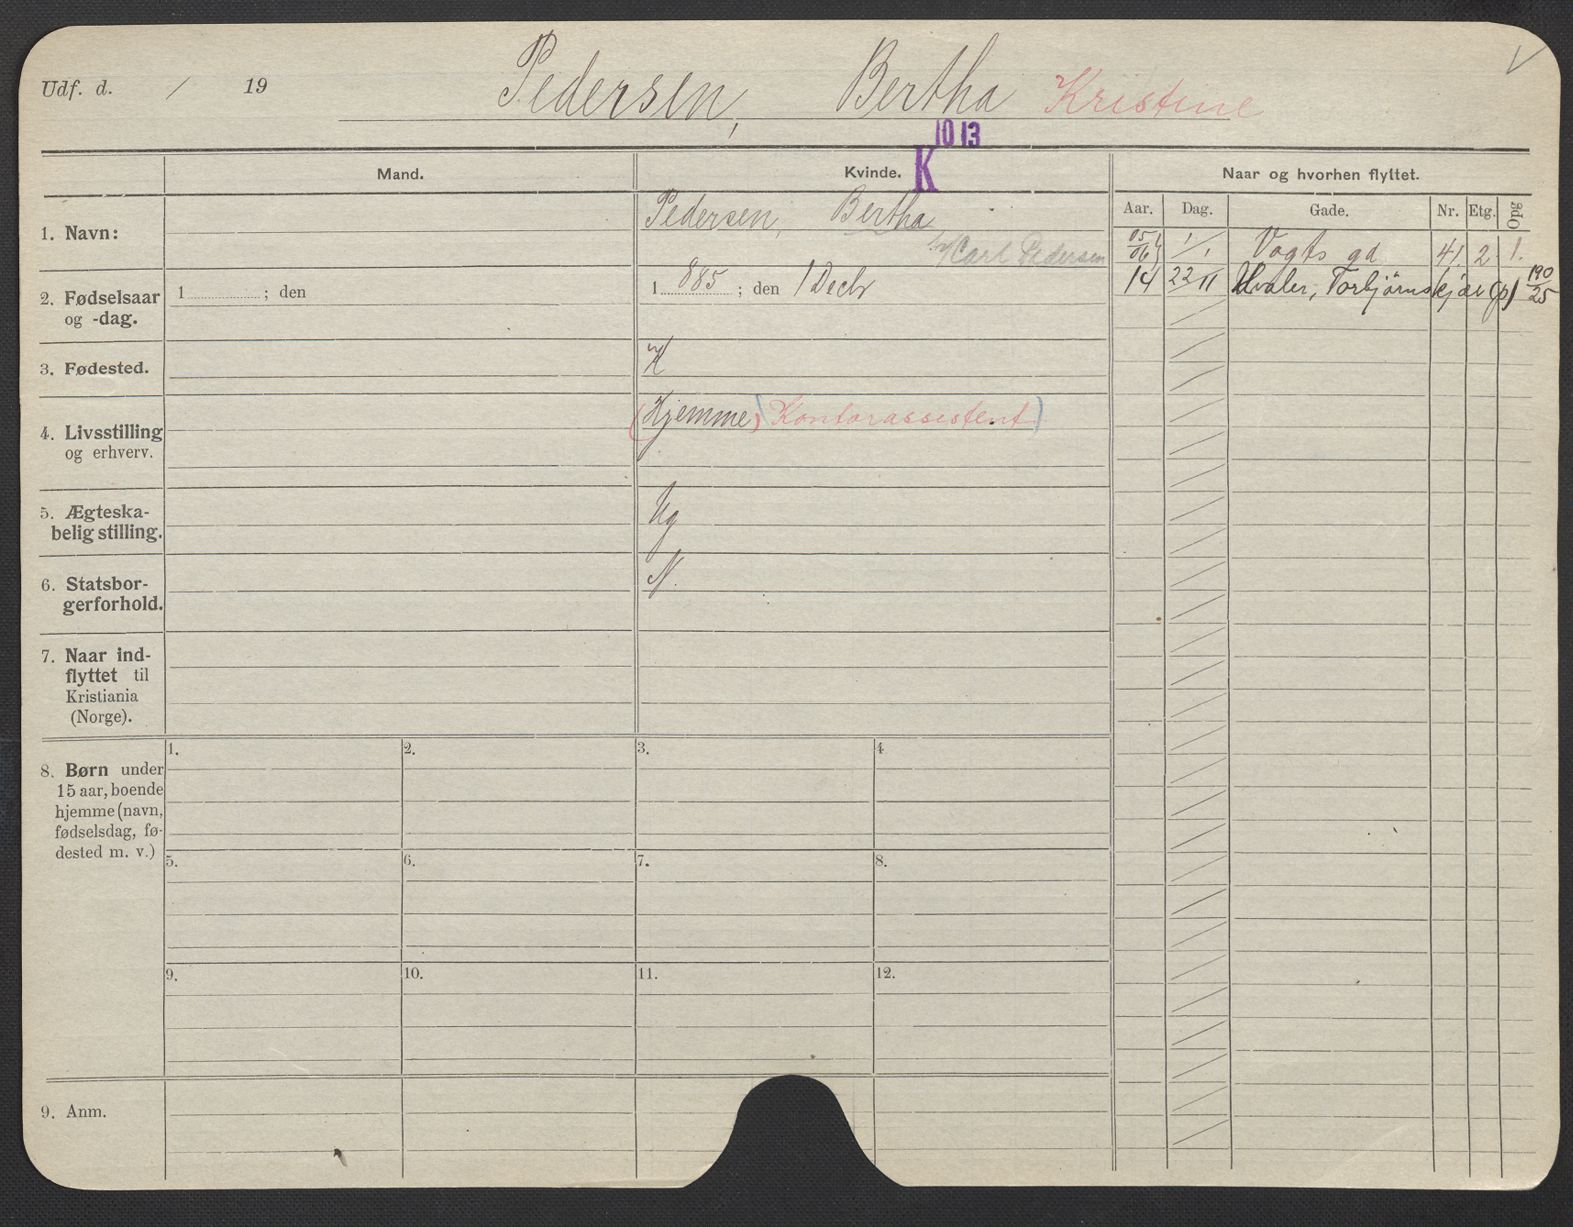 Udf. d. / 19 Pedersen, Bertha Kristine
10 13
K
Mand. Kvinde. Naar og hvorhen flyttet.
Aar. Dag. Gade. Nr. Etg. Opg
1. Navn: Pedersen, Bertha
Carl Pedersen
05/06 1/1 Vogts gd 41. 2 1.
14 22/11 Hvaler, Torbjørnskjær (p) 190/25
2. Fødselsaar og -dag. 1 ; den 1 885 ; den 1 Decbr
3. Fødested. K
4. Livsstilling og erhverv. (Hjemme) Kontorassistent)
5. Ægteska-
belig stilling. Ug
6. Statsbor-
gerforhold. N.
7. Naar ind-
flyttet til
Kristiania
(Norge).
8. Børn under
15 aar, boende
hjemme (navn,
fødselsdag, fø-
dested m. v.)
1. 2. 3. 4
5. 6. 7. 8.
9. 10. 11. 12.
9. Anm.